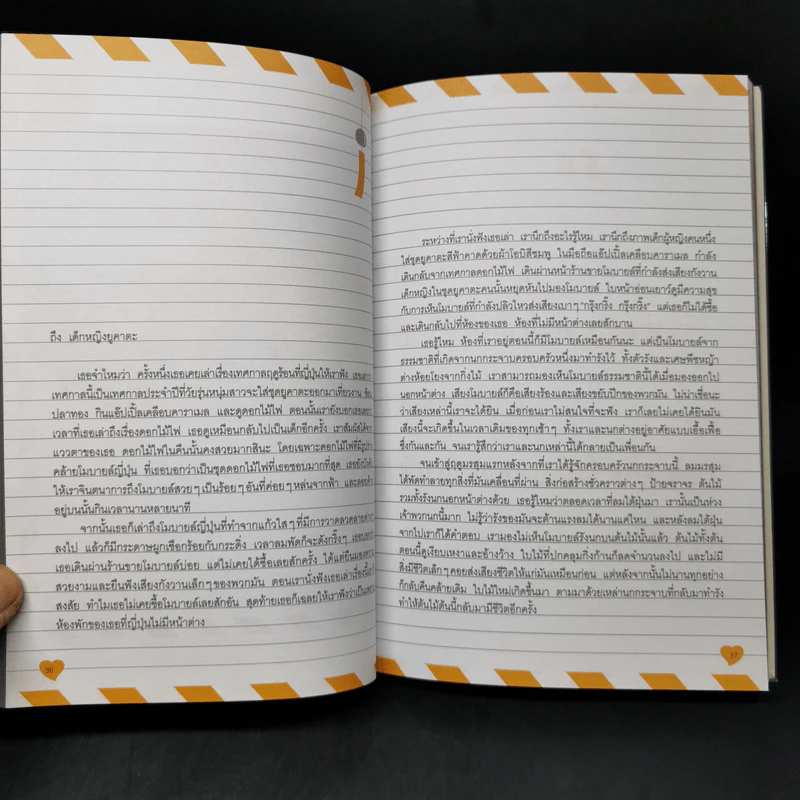 ถึง เด็กหญิงยูคาตะ
เธอจำไหมว่า ครั้งหนึ่งเธอเคยเล่าเรื่องเทศกาลฤดูร้อนที่ญี่ปุ่นให้เราฟัง
เทศกาลนี้เป็นเทศกาลประจำปีที่วัยรุ่นหนุ่มสาวจะใส่ชุดยูคาตะออกมาเที่ยวงาน ช้อน
ปลาทอง กินแอ๊ปเปิ้ลเคลือบคาราเมล และดูดอกไม้ไฟ ตอนนั้นเรายังบอกเธอ
เวลาที่เธอเล่าถึงเรื่องดอกไม้ไฟ เธอดูเหมือนกลับไปเป็นเด็กอีกครั้ง เราสัมผัสได้
แววตาของเธอ ดอกไม้ไฟในคืนนั้นคงสวยมากสินะ โดยเฉพาะดอกไม้ไฟที่มีรูปร่าง
คล้ายโมบายล์ญี่ปุ่น ที่เธอบอกว่าเป็นชุดดอกไม้ไฟที่เธอชอบมากที่สุด
ให้เราจินตนาการถึงโมบายล์สวยๆ เป็นร้อยๆ อันที่ค่อยๆ หล่นจากฟ้า และ
อยู่บนนั้นกินเวลานานหลายนาที
จากนั้นเธอก็เล่าถึงโมบายล์ญี่ปุ่นที่ทำจากแก้วใสๆ ที่มีการวาดลวดลายต่างๆ
ลงไป แล้วก็มีกระดาษผูกเชือกร้อยกับกระดิ่ง เวลาลมพัดก็จะดังกริ๊งๆ
เธอเดินผ่านหน้าร้านขายโมบายล์บ่อย แต่ไม่เคยได้ซื้อเลยสักครั้ง ได้แต่ยืนมอง
สวยงามและยืนฟังเสียงกังวานเล็กๆ ของพวกมัน ตอนเรานั่งฟังเธอเล่าเรื่องนี้
สงสัย ทำไมเธอไม่เคยซื้อโมบายล์เลยสักอัน สุดท้ายเธอก็เฉลยให้เราฟังว่าเป็น
ห้องพักของเธอที่ญี่ปุ่นไม่มีหน้าต่าง
36
ระหว่างที่เรานั่งฟังเธอเล่า เรานึกถึงอะไรรู้ไหม เรานึกถึงภาพเด็กผู้หญิงคนหนึ่ง
ใส่ชุดยูคาตะสีฟ้าคาดด้วยผ้าโอบิสีชมพู ในมือถือแอ๊ปเปิ้ลเคลือบคาราเมล กำลัง
เดินกลับจากเทศกาลดอกไม้ไฟ เดินผ่านหน้าร้านขายโมบายล์ที่กำลังส่งเสียงกังวาน
เด็กหญิงในชุดยูคาตะคนนั้นหยุดหันไปมองโมบายล์ ใบหน้าอ่อนเยาว์ดูมีความสุข
กับการเห็นโมบายล์ที่กำลังปลิวไหวส่งเสียงเบาๆ "กรุ๊งกริ๊ง กรุ๊งกริ๊ง" แต่เธอก็ไม่ได้ซื้อ
และเดินกลับไปที่ห้องของเธอ ห้องที่ไม่มีหน้าต่างเลยสักบาน
เธอรู้ไหม ห้องที่เราอยู่ตอนนี้ก็มีโมบายล์เหมือนกันนะ แต่เป็นโมบายล์จาก
ธรรมชาติที่เกิดจากนกกระจาบครอบครัวหนึ่งมาทำรังไว้ ทั้งตัวรังและเศษพืชหญ้า
ต่างห้อยโยงจากกิ่งไม้ เราสามารถมองเห็นโมบายล์ธรรมชาตินี้ได้เมื่อมองออกไป
นอกหน้าต่าง เสียงโมบายล์ก็คือเสียงร้องและเสียงขยับปีกของพวกมัน ไม่น่าเชื่อนะ
ว่าเสียงเหล่านี้เราจะได้ยิน เมื่อก่อนเราไม่สนใจที่จะฟัง เราก็เลยไม่เคยได้ยินมัน
เสียงนี้จะเกิดขึ้นในเวลาเดิมของทุกเช้าๆ ทั้งเราและนกต่างอยู่อาศัยแบบเอื้อเฟื้อ
ซึ่งกันและกัน จนเรารู้สึกว่าเราและนกเหล่านี้ได้กลายเป็นเพื่อนกัน
จนเข้าสู่ฤดูมรสุมแรกหลังจากที่เราได้รู้จักครอบครัวนกกระจาบนี้ ลมมรสุม
ได้พัดทำลายทุกสิ่งที่มันเคลื่อนที่ผ่าน สิ่งก่อสร้างชั่วคราวต่างๆ ป้ายจราจร ต้นไม้
รวมทั้งรังนกนอกหน้าต่างด้วย เธอรู้ไหมว่าตลอดเวลาที่ลมใต้ฝุ่นมา เรานั้นเป็นห่วง
เจ้าพวกนกนี้มาก ไม่รู้ว่ารังของมันจะต้านแรงลมได้นานแค่ไหน และหลังลมใต้ฝุ่น
จากไปเราก็ได้คำตอบ เรามองไม่เห็นโมบายล์รังนกบนต้นไม้นั้นแล้ว ต้นไม้ทั้งต้น
ตอนนี้ดูเงียบเหงาและอ้างว้าง ใบไม้ที่ปกคลุมกิ่งก้านก็ลดจำนวนลงไป และไม่มี
สิ่งมีชีวิตเล็กๆ คอยส่งเสียงชีวิตให้แก่มันเหมือนก่อน แต่หลังจากนั้นไม่นานทุกอย่าง
ก็กลับคืนคล้ายเดิม ใบไม้ใหม่เกิดขึ้นมา ตามมาด้วยเหล่านกกระจาบที่กลับมาทำรัง
ทำให้ต้นไม้ต้นนี้กลับมามีชีวิตอีกครั้ง
37